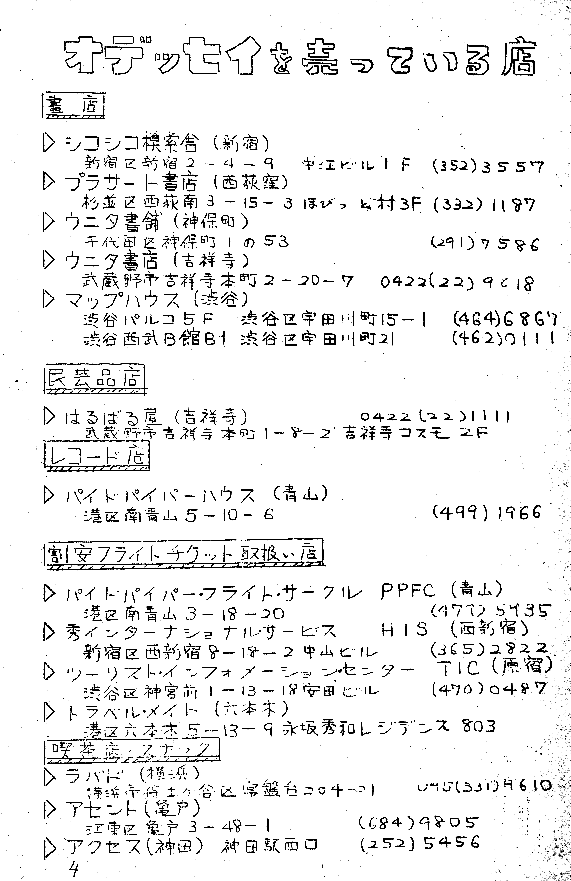 オデッセイを売っている店
書店
▷ シコシコ模索舎 (新宿)
新宿区新宿2-4-9 ビル1F (352)3557
▷ プラサード書店 (西荻窪)
杉並区西荻南3-15-3 ほびっと村3F (332)1187
▷ ウニタ書舗 (神保町)
千代田区神保町1の53 (291)7586
▷ ウニタ書店 (吉祥寺)
武蔵野市吉祥寺本町2-20-7 0422(22)
▷ マップハウス (渋谷)
渋谷パルコ5F 渋谷区宇田川町15-1 (464)6867
渋谷西武B館B1 渋谷区宇田川町21 (462)0111
民芸品店
▷ はるばる屋 (吉祥寺) 0422(22)1111
武蔵野市吉祥寺本町1-8-2 吉祥寺コスモ2F
レコード店
▷ パイドパイパーハウス (青山)
港区南青山5-10-6 (499)1966
割安フライトチケット取扱い店
▷ パイドパイパー・フライト・サークル PPFC (青山)
港区南青山3-18-20
▷ 秀インターナショナルサービス HIS (西新宿)
新宿区西新宿8-18-2 中山ビル (365)2822
▷ ツーリスト・インフォメーション・センター TIC (原宿)
渋谷区神宮前1-13-18 安田ビル (470)0487
▷ トラベル・メイト (六本木)
港区六本木5-13-9 永坂秀和レジデンス 803
喫茶店・スナック
▷ ラバド (横浜)
区常盤台
▷ アセント (亀戸)
江東区亀戸3-48-1 (684)9805
▷ アクセス (神田) 神田駅西口 (252)5456
4